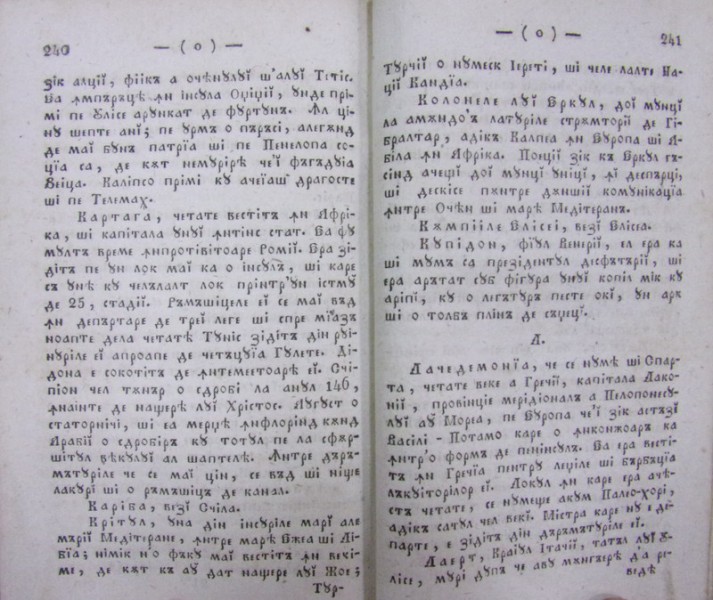 240 — ( o ) —
зік алції, фіік а очѣнꙋлꙋї ш'алꙋї Тетіс.
Єа ꙟмпърѣцѣ ꙟн інсꙋла Оџіџії, ꙋнде прі-
мі пе Ꙋлісе арꙋнкат де фꙋртꙋнъ. Ꙟл ці-
нꙋ шепте анї; пе ꙋрмъ о пъръсі, алегѫнд
де маї бꙋнъ патріа ші пе Пенелопа со-
ціа са, де кѫт немꙋрірѣ че'ї фъгъдꙋіа
Ꙁеіца. Каліпсо прімі кꙋ ачеїаш драгосте
ші пе Телемах.
Картага, четате вестітъ ꙟн Афрі-
ка, ші капітала ꙋнꙋї ꙟнтінс стат. Єа фꙋ
мꙋлтъ време ꙟнпротівітоаре Ромії. Єра зі-
дітъ пе ꙋн лок маї ка о інсꙋлъ, ші каре
съ ꙋнѣ кꙋ челълалт лок прінтр'ꙋн істмꙋ
де 25, стадії. Ръмъшіцеле еї се маї въд
ꙟн депъртаре де треї леге ші спре міазъ
ноапте дела четатѣ Тꙋніс зідітъ дін рꙋі-
нꙋріле еї апроапе де четъцꙋіа Гꙋлете. Ді-
дона е сокотітъ де ꙟнтемеетоаре еї. Счі-
піон чел тѫнър о сдробі ла анꙋл 146,
ꙟнаінте де нащерѣ лꙋї Хрістос. Аꙋгꙋст о
статорнічі, ші еа мерџѣ ꙟнфлорінд кѫнд
Арабії о сдробіръ кꙋ тотꙋл пе ла сфѫр-
шітꙋл вѣкꙋлꙋї ал шаптелѣ. Ꙟнтре дъръ-
мътꙋріле че се маї цін, се въд ші ніще
лакꙋрі ші о ръмъшіцъ де канал.
Каріба, везї Счіла.
Крітꙋл, ꙋна дін інсꙋріле марї але
мърії Медітеране, ꙟнтре марѣ Єџеа ші Лі-
біа; німік н'о фъкꙋ маї вестітъ ꙟн векі-
ме, де кѫт къ аꙋ дат нащере лꙋї Жое;
Тꙋр-
— ( o ) — 241
Тꙋрчії о нꙋмеск Іереті, ші челе лалте На-
ції Кандіа.
Колонеле лꙋї Єркꙋл, дої мꙋнці
ла амѫндоъ латꙋріле стрѫмторії де Гі-
бралтар, адікъ Калпеа ꙟн Єꙋропа ші А-
біла ꙟн Афріка. Поецїї зік къ Єркꙋл гъ-
сінд ачещї дої мꙋнці ꙋніці, ꙟї деспърці,
ші дескісе пѫнтре дѫншії комꙋнікаціа
ꙟнтре Очѣн ші марѣ Медітеранъ.
Кѫмпііле Єлісеї, везї Єлісеа.
Кꙋпідон, фіꙋл Венерії, ел ера ка
ші мꙋмъ са презідентꙋл десфътърії, ші
ера арътат сꙋб фігꙋра ꙋнꙋї копіл мік кꙋ
аріпї, кꙋ о легътꙋръ песте окї, ꙋн арк
ші о толбъ плінъ де съџецї.
Л.
Лачедемоніа, че се нꙋмѣ ші Спар-
та, четате веке а Гречії, капітала Лако-
нії, провінціе мерідіоналъ а Пелопонесꙋ-
лꙋї аꙋ Мореа, пе Єꙋропа че'ї зік астъзї
Васілі - Потамо каре о ꙟнконжоаръ ка
ꙟнтр'о формъ де пенінсꙋлъ. Єа ера весті-
тъ ꙟн Гречіа пентрꙋ леџіле ші бърбъціа
лъкꙋіторілор еї. Локꙋл ꙟн каре ера ачѣ-
стъ четате, се нꙋмеще акꙋм Палео-хорі,
адікъ сатꙋл чел векї. Містра каре нꙋ е де-
парте, е зідітъ дін дъръмътꙋріле еї.
Лаерт, Краіꙋл Ітачії, татъл лꙋї Ꙋ-
лісе, мꙋрі дꙋпъ че авꙋ мѫнгъере д'а ре-
ведѣ